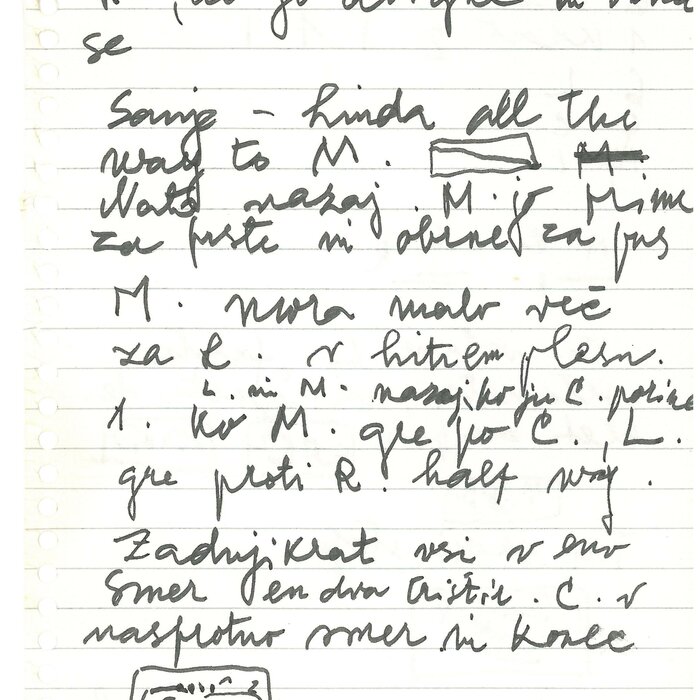 se
Sanja - hinda all the
way to M.
Nato nazaj. M. jo prime
za prste in obrne za pas
M. mora malo več
za R. v hitrem plesu.
L. in M. nazaj, ko ju C. porine
1. ko M. gre po C., L.
gre proti R. half way.
Zadnjikrat vsi v eno
smer en dva tri štir. C. v
nasprotno smer in konec